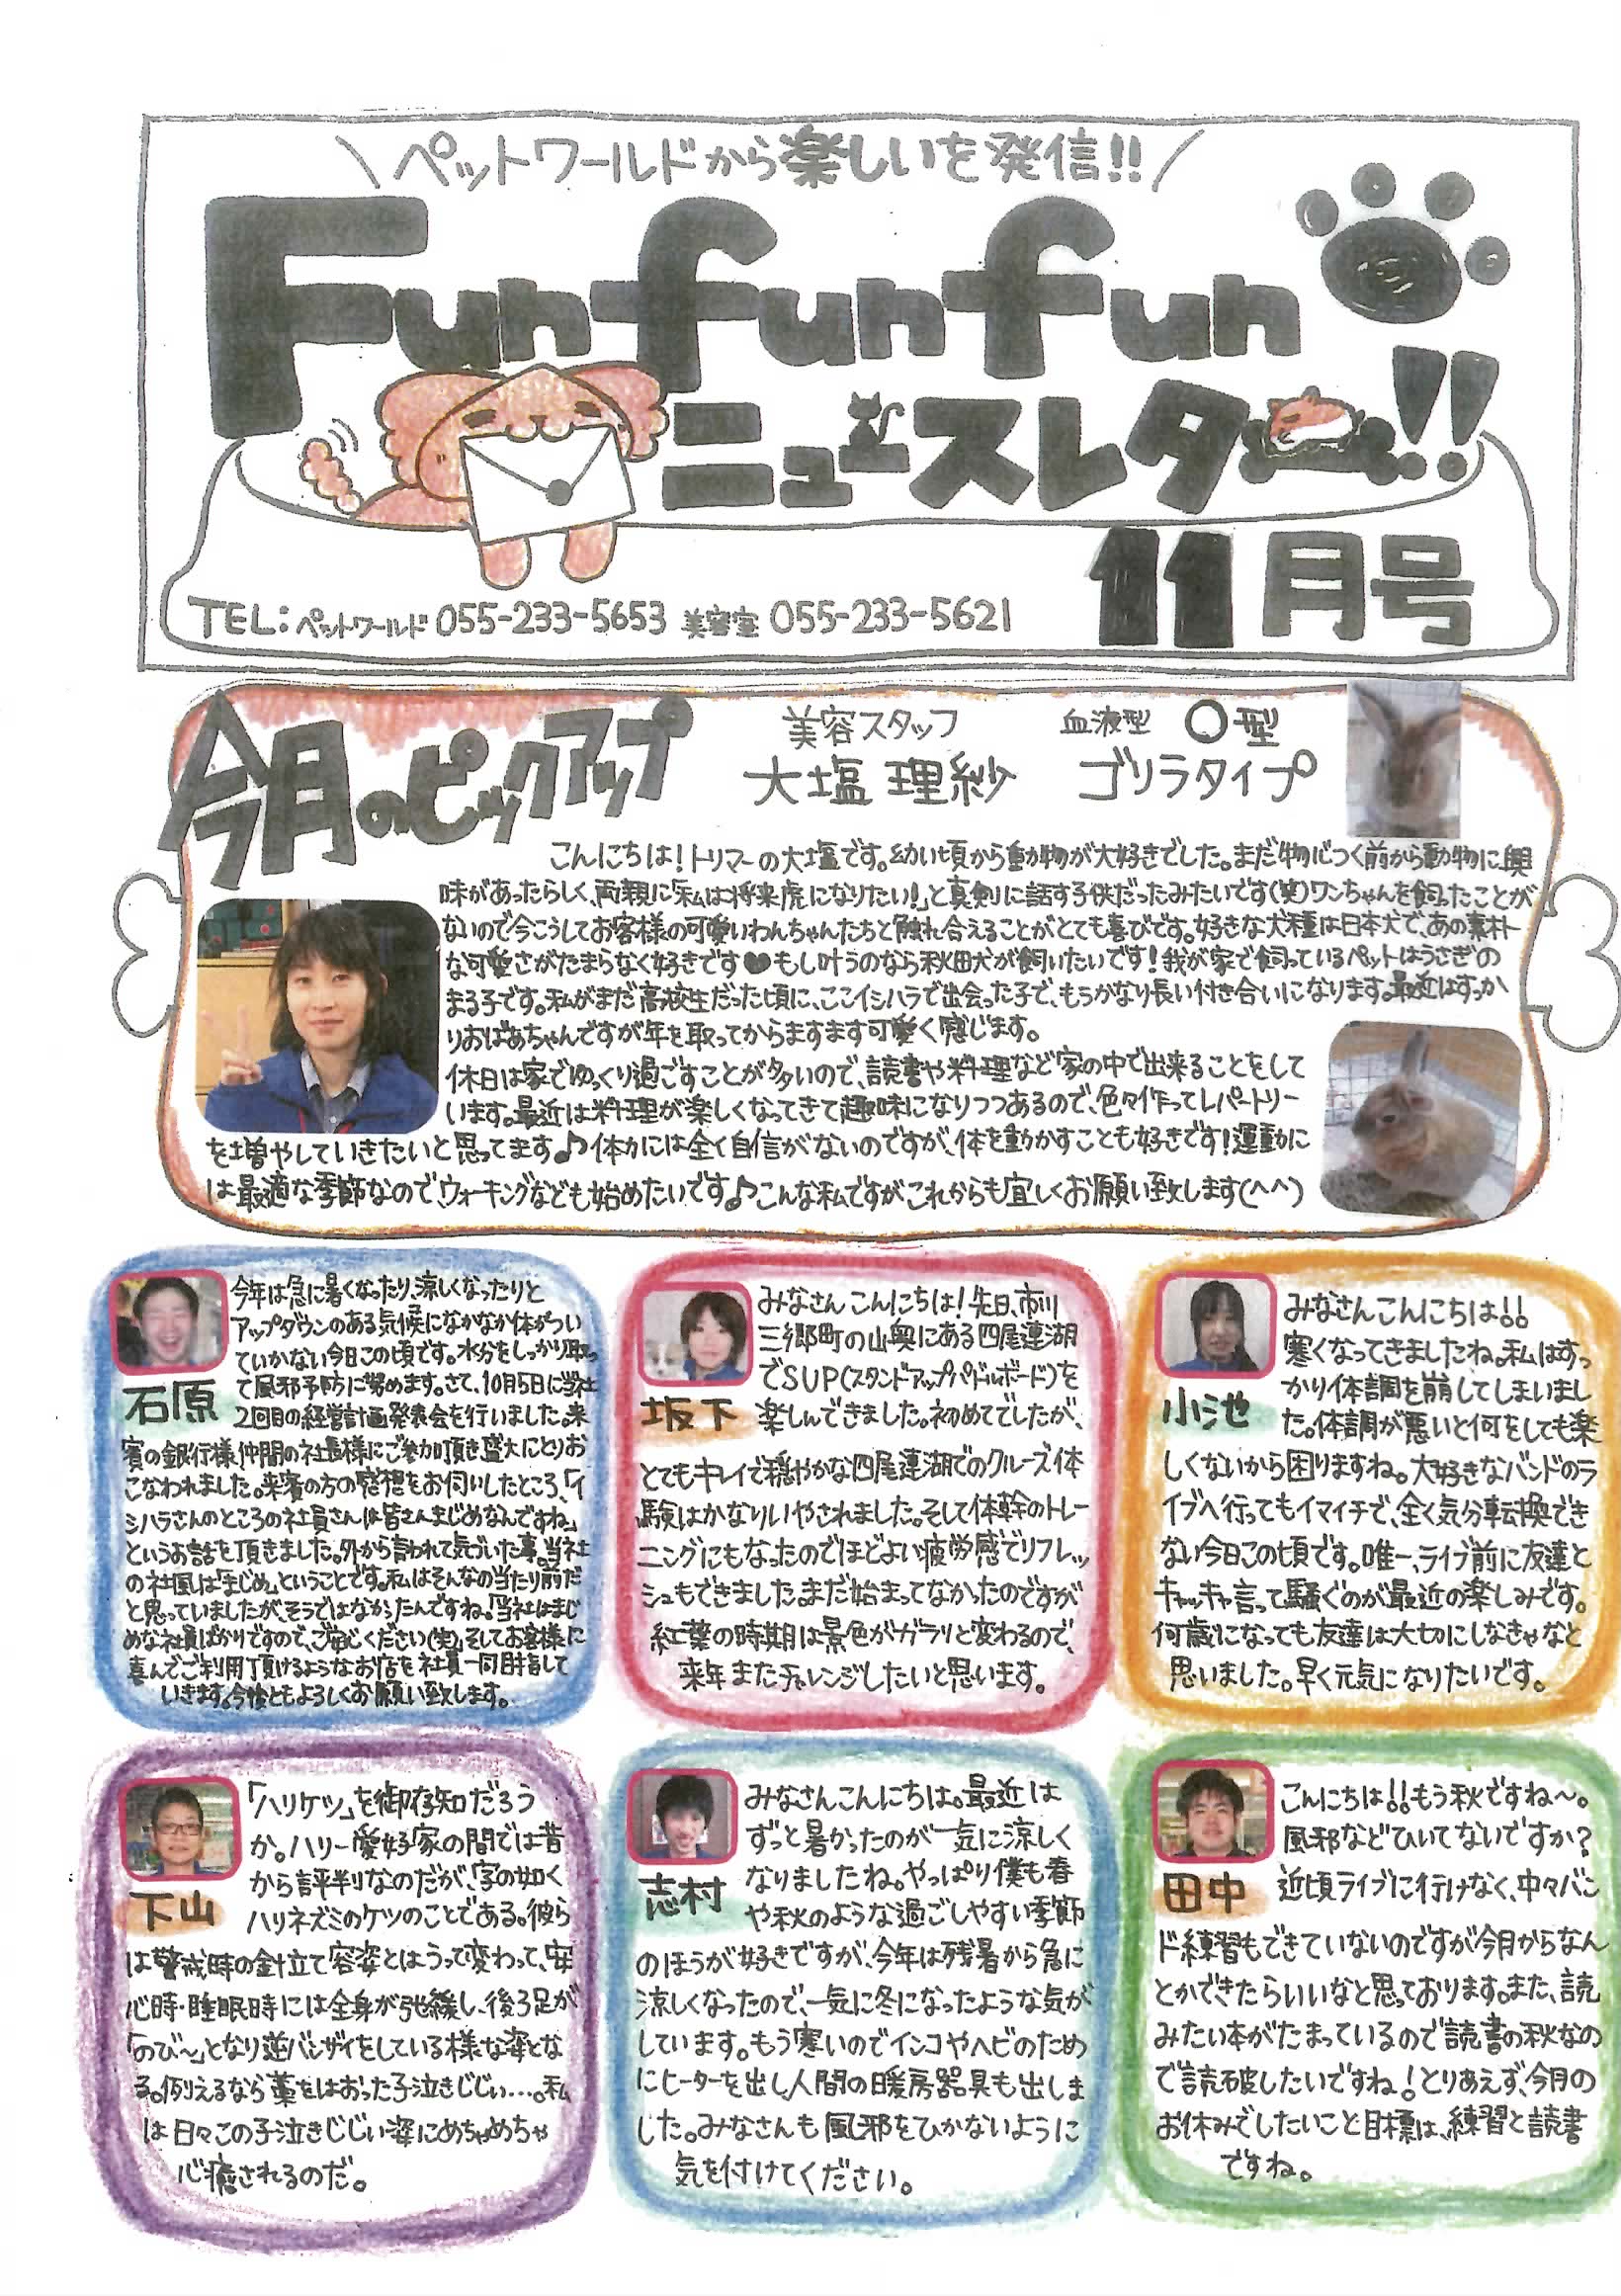 ペットワールドから楽しいを発信!!
Funfunfun
ニュースレター!!
11月号
TEL:ペットワールド 055-233-5653 美容室 055-233-5621
今月のピックアップ
美容スタッフ
大塩 理紗
血液型 O型
ゴリラタイプ
こんにちは!トリマーの大塩です。幼い頃から動物が大好きでした。まだ物心つく前から動物に興
味があったらしく、両親に「私は将来虎になりたい!」と真剣に話す子供だったみたいです(笑)ワンちゃんを飼ったことが
ないので今こうしてお客様の可愛いわんちゃんたちと触れ合えることがとても喜びです。好きな犬種は日本犬で、あの素朴
な可愛さがたまらなく好きです♥もし叶うのなら秋田犬が飼いたいです!我が家で飼っているペットはうさぎの
まる子です。私がまだ高校生だった頃に、ここイシハラで出会った子で、もうかなり長い付き合いになります。最近はすっか
りおばあちゃんですが年を取ってからますます可愛く感じます。
休日は家でゆっくり過ごすことが多いので、読書や料理など家の中で出来ることをして
います。最近は料理が楽しくなってきて趣味になりつつあるので、色々作ってレパートリー
を増やしていきたいと思ってます♪体力には全く自信がないのですが、体を動かすことも好きです!運動に
は最適な季節なので、ウォーキングなども始めたいです♪こんな私ですがこれからも宜しくお願い致します(^^)
石原
今年は急に暑くなったり、涼しくなったりと
アップダウンのある気候になかなか体がつい
ていかない今日この頃です。水分をしっかり取っ
て風邪予防に努めます。さて、10月5日に当社
2回目の経営計画発表会を行いました。来
賓の銀行様、仲間の社長様にご参加頂き盛大にとりお
こなわれました。来賓の方の感想をお伺いしたところ、「イ
シハラさんのところの社員さんは皆さんまじめなんですね」
というお話を頂きました。外から言われて気づいた事。当社
の社風は「まじめ」ということです。私はそんなの当たり前だ
と思っていましたが、そうではなかったんですね。「当社はまじ
めな社員ばかりですので、ご安心ください(笑)」そしてお客様に
喜んでご利用頂けるようなお店を社員一同目指して
いきます。今後ともよろしくお願い致します。
坂下
みなさんこんにちは!先日、市川
三郷町の山奥にある四尾連湖
でSUP(スタンドアップパドルボード)を
楽しんできました。初めてでしたが、
とてもキレイで穏やかな四尾連湖でのクルーズ体
験はかなりいやされました。そして体幹のトレー
ニングにもなったのでほどよい疲労感でリフレッ
シュもできました。まだ始まってなかったのですが
紅葉の時期は景色がガラリと変わるので、
来年またチャレンジしたいと思います。
小池
みなさんこんにちは!!
寒くなってきましたね。私はすっ
かり体調を崩してしまいまし
た。体調が悪いと何をしても楽
しくないから困りますね。大好きなバンドのラ
イブへ行ってもイマイチで、全く気分転換でき
ない今日この頃です。唯一、ライブ前に友達と
キャッキャ言って騒ぐのが最近の楽しみです。
何歳になっても友達は大切にしなきゃなと
思いました。早く元気になりたいです。
下山
「ハリケツ」を御存知だろう
か。ハリー愛好家の間では昔
から評判なのだが、字の如く
ハリネズミのケツのことである。彼ら
は警戒時の針立て容姿とはうって変わって、安
心時・睡眠時には全身が弛緩し、後ろ足が
「のび〜」となり逆バンザイをしている様な姿とな
る。例えるなら藁をはおった子泣きじじい…。私
は日々この子泣きじじい姿にめちゃめちゃ
心癒されるのだ。
志村
みなさんこんにちは。最近は
ずっと暑かったのが一気に涼しく
なりましたね。やっぱり僕も春
や秋のような過ごしやすい季節
のほうが好きですが、今年は残暑から急に
涼しくなったので、一気に冬になったような気が
しています。もう寒いのでインコやヘビのため
にヒーターを出し、人間の暖房器具も出しま
した。みなさんも風邪をひかないように
気を付けてください。
田中
こんにちは!!もう秋ですね〜。
風邪などひいてないですか?
近頃ライブに行けなく、中々バン
ド練習もできていないのですが今月からなん
とかできたらいいなと思っております。また、読
みたい本がたまっているので読書の秋なの
で読破したいですね!とりあえず、今月の
お休みでしたいこと目標は、練習と読書
ですね。